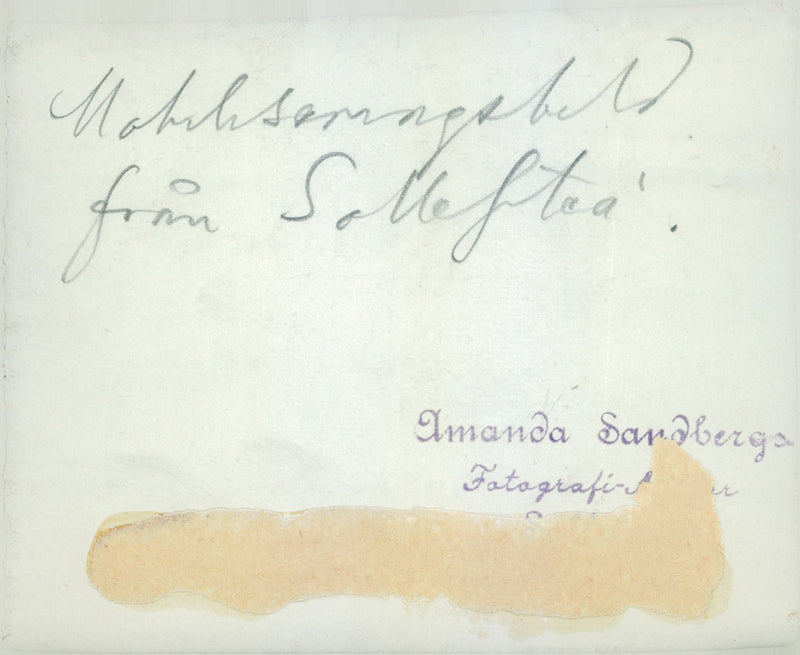 Mobiliseringsbild
från Sollefteå.
Amanda Sandbergs
Fotografi-